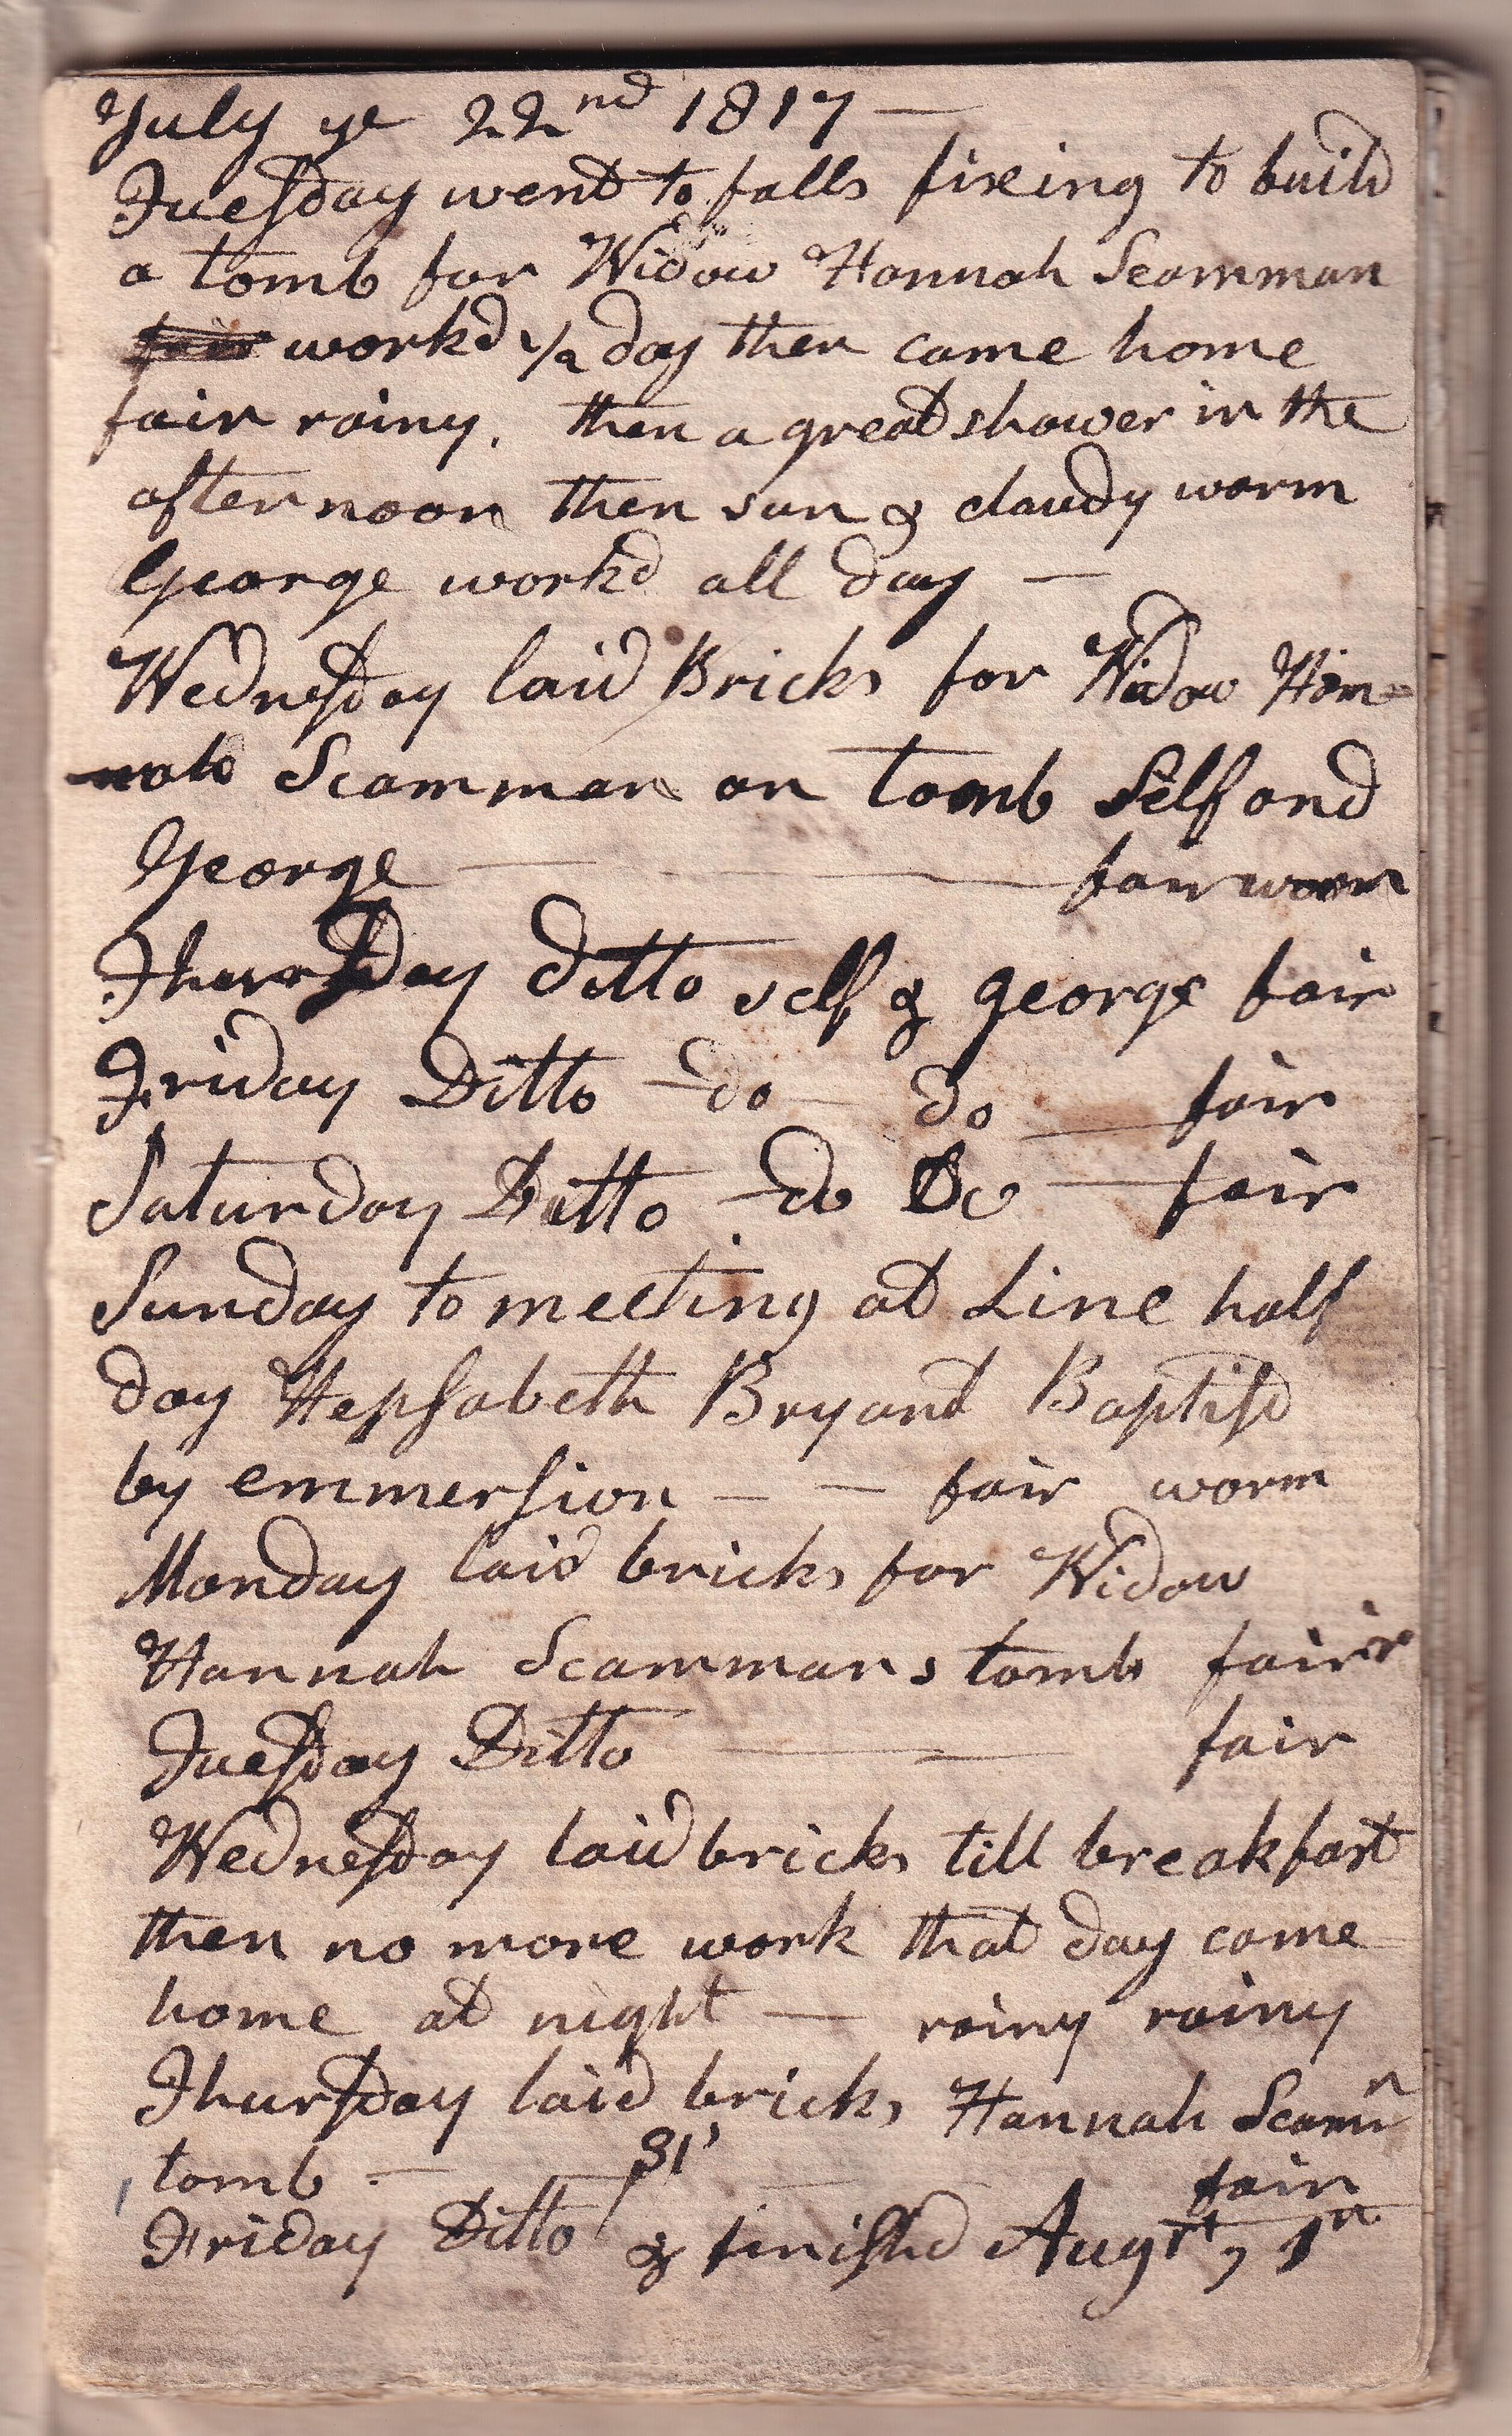 July ye 22nd 1817 —
Tuesday went to falls fixing to build
a tomb for Widow Hannah Scamman
workd 1/2 day then came home
fair rainy. then a great shower in the
afternoon then sun & cloudy warm
George workd all day —
Wednesday laid Bricks for Widow Han-
nah Scamman on tomb Self and
George — fair warm
Thursday ditto self & george fair
Friday Ditto — do — do — fair
Saturday Ditto — do Do — fair
Sunday to meeting at Line half
day Hepsabeth Bryant Baptisd
by emmersion — — fair warm
Monday laid bricks for Widow
Hannah Scammans tomb fair
Tuesday Ditto — fair
Wednesday laid bricks till breakfast
then no more work that day came
home at night — rainy rainy
Thursday laid bricks Hannah Scamn
tomb — 31 fair
Friday Ditto & finishd Augst, 1st